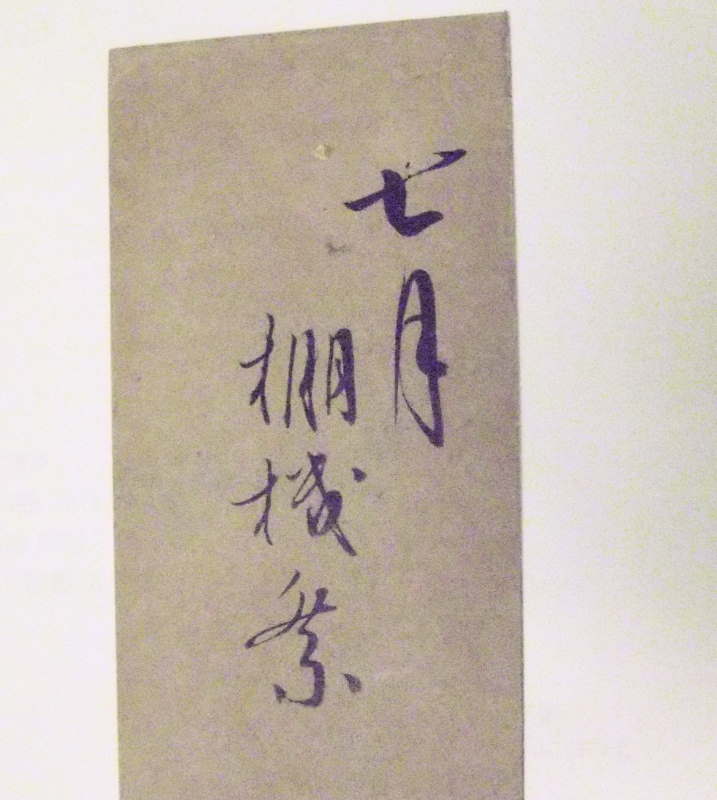 七月
棚機祭